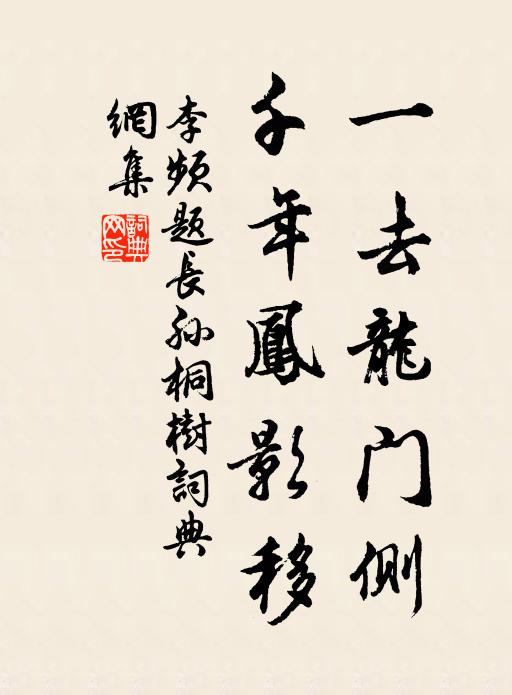 一去龍门側
千年鳳影移
李頻題長孫桐樹詞典
網集
詞典网印